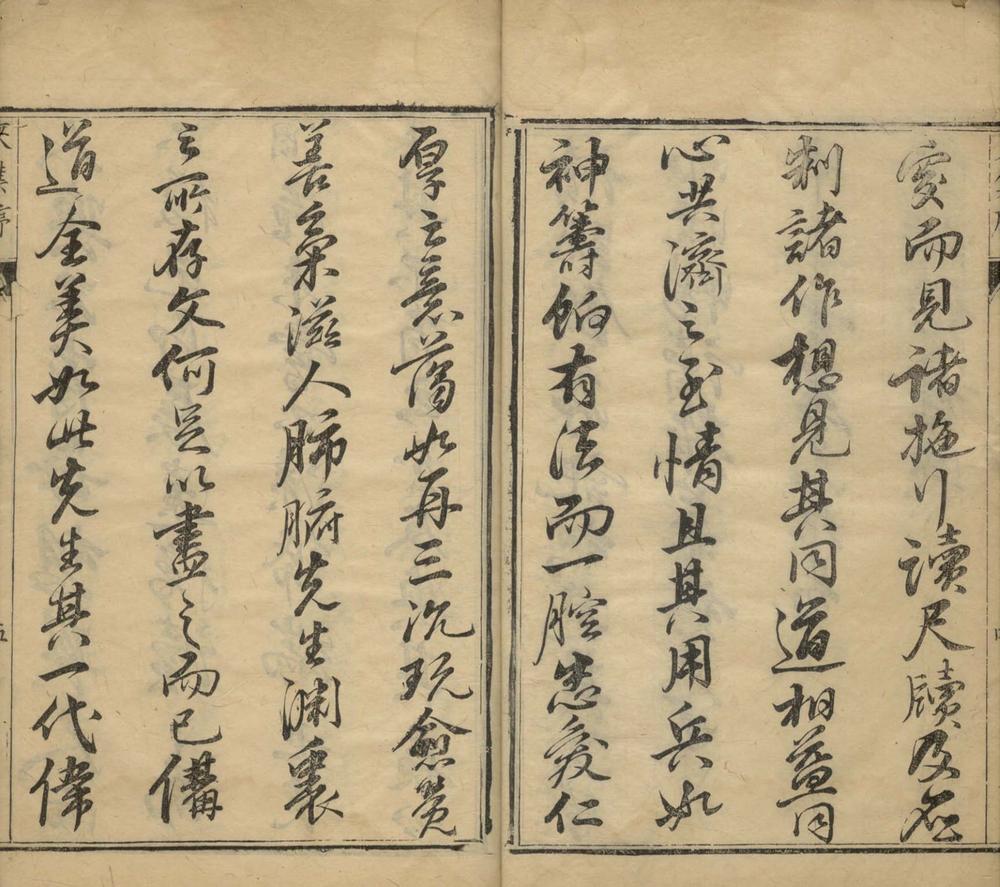 愛而見諸施行讀尺牘及石
制諸作想見其同道相益同
心共濟之至情且其用兵如
神籌餉有法而一腔忠愛仁
厚之意藹如再三沉玩愈覺
善氣滋人肺腑先生淵衷
之所存文何足以盡之而已備
道全美如此先生其一代偉
文集序
五